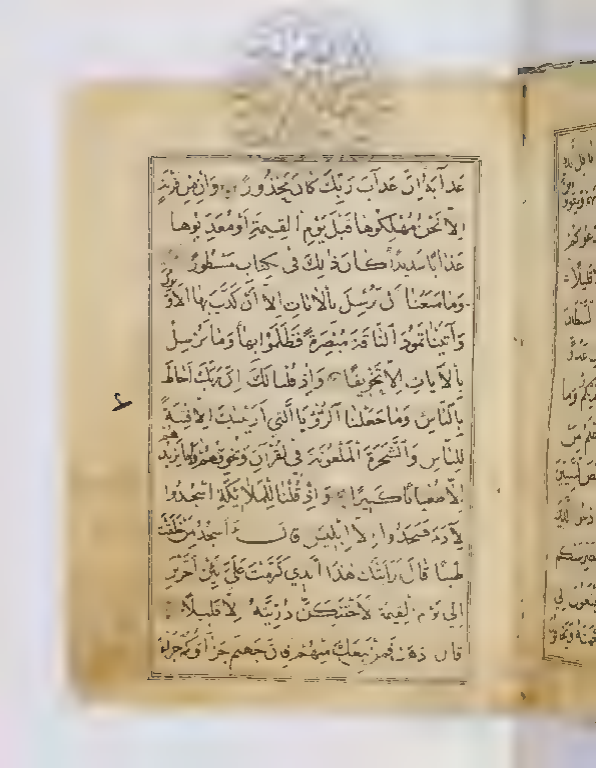 عَذَابَهُ إِنَّ عَذَابَ رَبِّكَ كَانَ مَحْذُورًا وَإِنْ مِنْ قَرْيَةٍ
إِلَّا نَحْنُ مُهْلِكُوهَا قَبْلَ يَوْمِ الْقِيمَةِ أَوْ مُعَذِّبُوهَا
عَذَابًا شَدِيدًا كَانَ ذَلِكَ فِي الْكِتَابِ مَسْطُورًا
وَمَا مَنَعَنَا أَنْ نُرْسِلَ بِالْآيَاتِ إِلَّا أَنْ كَذَّبَ بِهَا الْأَوَّلُونَ
وَآتَيْنَا ثَمُودَ النَّاقَةَ مُبْصِرَةً فَظَلَمُوا بِهَا وَمَا نُرْسِلُ
بِالْآيَاتِ إِلَّا تَخْوِيفًا وَإِذْ قُلْنَا لَكَ إِنَّ رَبَّكَ أَحَاطَ
بِالنَّاسِ وَمَا جَعَلْنَا الرُّؤْيَا الَّتِي أَرَيْنَاكَ إِلَّا فِتْنَةً
لِلنَّاسِ وَالشَّجَرَةَ الْمَلْعُونَةَ فِي الْقُرْآنِ وَنُخَوِّفُهُمْ فَمَا يَزِيدُهُمْ
إِلَّا طُغْيَانًا كَبِيرًا وَإِذْ قُلْنَا لِلْمَلَائِكَةِ اسْجُدُوا
لِآدَمَ فَسَجَدُوا إِلَّا إِبْلِيسَ قَالَ ءَأَسْجُدُ لِمَنْ خَلَقْتَ
طِينًا قَالَ أَرَأَيْتَكَ هَذَا الَّذِي كَرَّمْتَ عَلَيَّ لَئِنْ أَخَّرْتَنِ
إِلَى يَوْمِ الْقِيمَةِ لَأَحْتَنِكَنَّ ذُرِّيَّتَهُ إِلَّا قَلِيلًا
قَالَ اذْهَبْ فَمَنْ تَبِعَكَ مِنْهُمْ فَإِنَّ جَهَنَّمَ جَزَاؤُكُمْ جَزَاءً